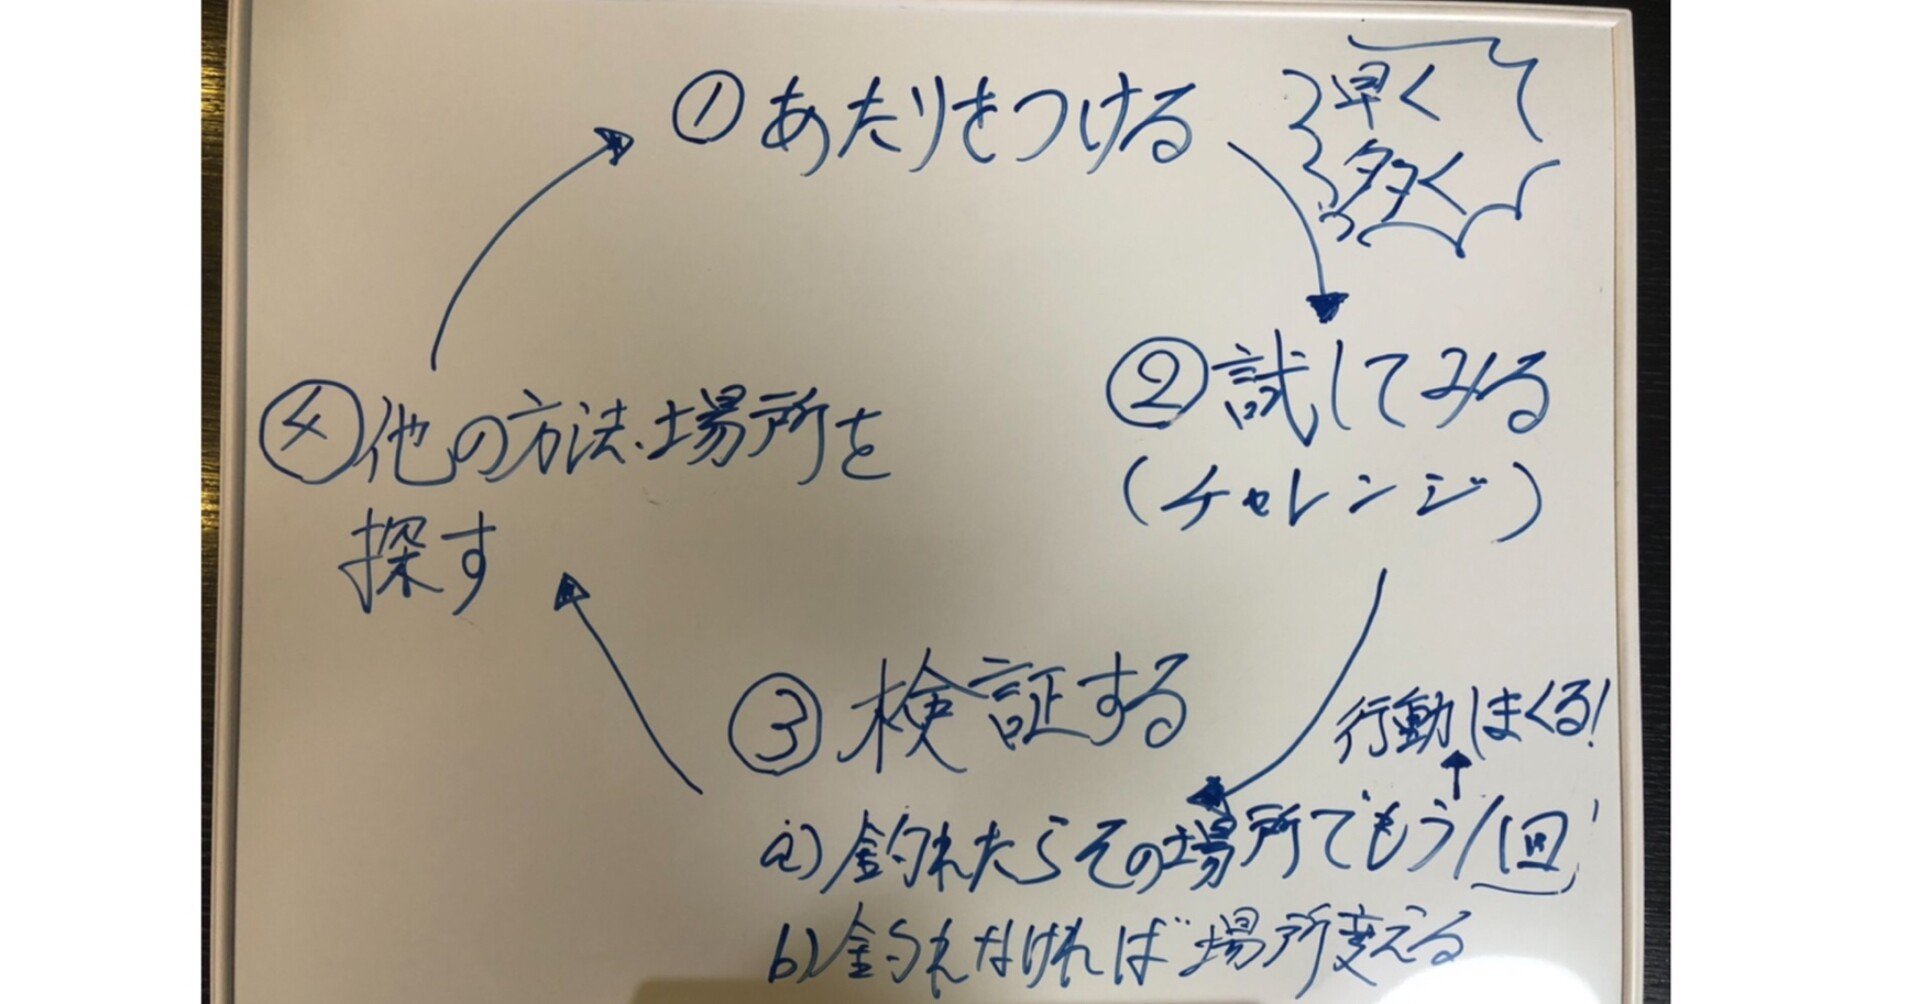 ①あたりをつける
早く
多く
②試してみる
(チャレンジ)
③検証する
行動しまくる!
a)釣れたらその場所でもう1回
b)釣れなければ場所変える
④他の方法、場所を
探す